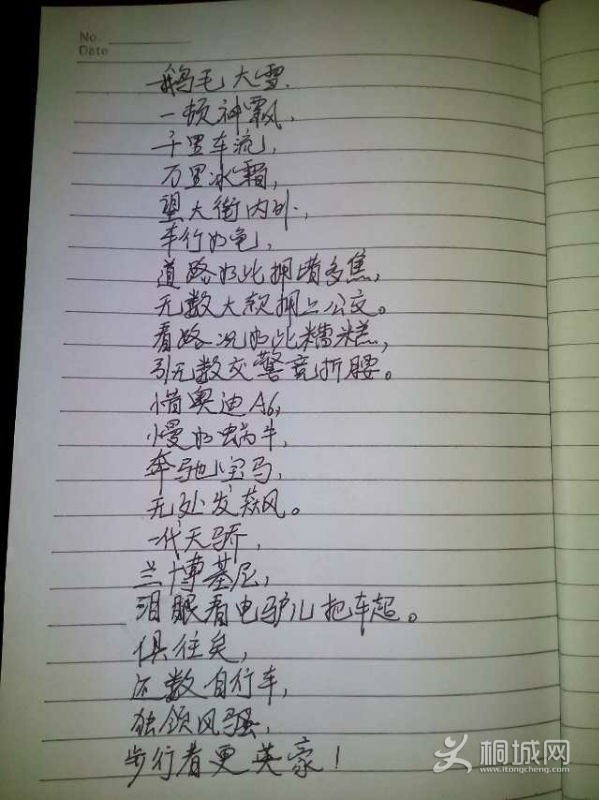 No.
Date
鹅毛大雪,
一顿神飘,
千里车流,
万里冰霜,
望大街内外,
车行如龟,
道路如此拥堵多焦,
无数大款拥上公交。
看路况如此糟糕,
引无数交警竞折腰。
惜奥迪A6,
慢如蜗牛,
奔驰宝马,
无处发飙。
一代天骄,
兰博基尼,
泪眼看电驴儿把车超。
俱往矣,
还数自行车,
独领风骚,
步行者更英豪!
桐城网
www.itongcheng.com